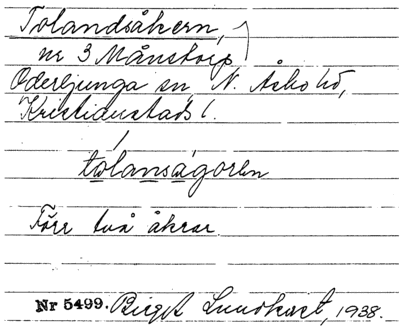 Tolandsåkern,
nr 3 Månstorp
Oderljunga sn, N. Åsbo hd,
Kristianstads l.
tolansågoren
Förr två åkrar.
Nr 5499. Birgit Lundkvist, 1938.